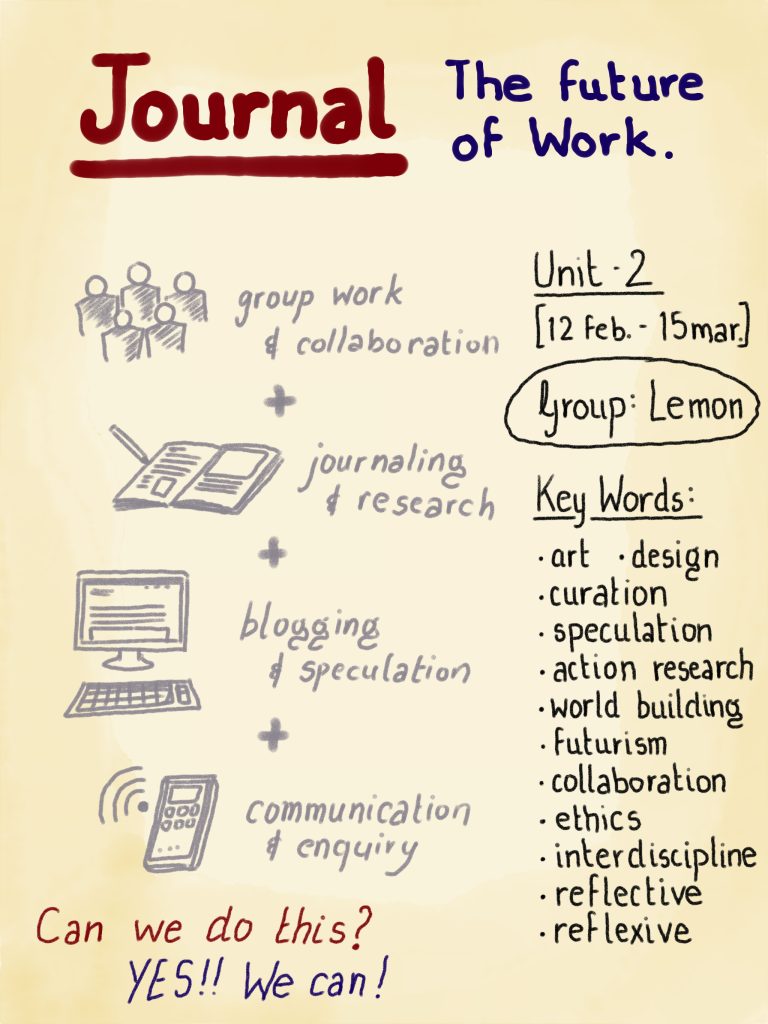 Journal
The future
of Work.
group work
& collaboration
+
journaling
& research
+
blogging
& speculation
+
communication
& enquiry
Can we do this?
YES!! We can!
Unit - 2
[12 Feb. - 15 mar.]
Group: Lemon
Key Words:
· art · design
· curation
· speculation
· action research
· world building
· futurism
· collaboration
· ethics
· interdiscipline
· reflective
· reflexive